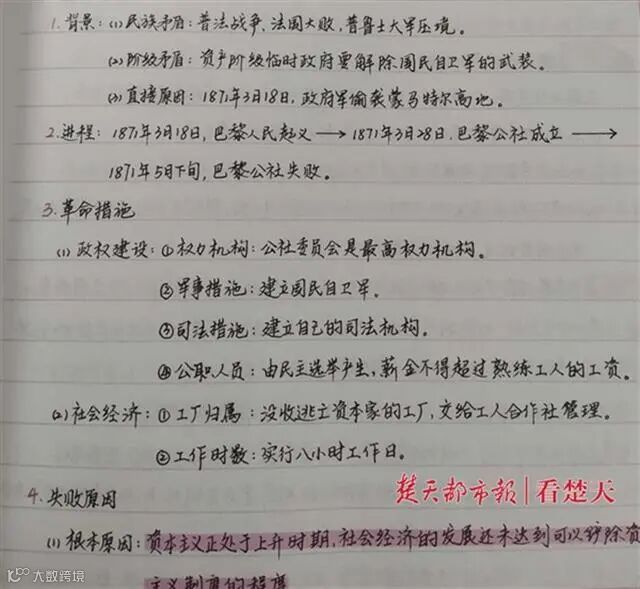 1. 背景: (1) 民族矛盾: 普法战争, 法国大败, 普鲁士大军压境。
(2) 阶级矛盾: 资产阶级临时政府要解除国民自卫军的武装。
(3) 直接原因: 1871年3月18日, 政府军偷袭蒙马特尔高地。
2. 进程: 1871年3月18日, 巴黎人民起义 → 1871年3月28日, 巴黎公社成立 →
1871年5月下旬, 巴黎公社失败。
3. 革命措施
(1) 政权建设: ①权力机构: 公社委员会是最高权力机构。
②军事措施: 建立国民自卫军。
③司法措施: 建立自己的司法机构。
④公职人员: 由民主选举产生, 薪金不得超过熟练工人的工资。
(2) 社会经济: ①工厂归属: 没收逃亡资本家的工厂, 交给工人合作社管理。
②工作时数: 实行八小时工作日。
4. 失败原因
楚天都市報 | 看楚天
(1) 根本原因: 资本主义正处于上升时期, 社会经济的发展还未达到可以铲除资
主义制度的程度
大数跨境